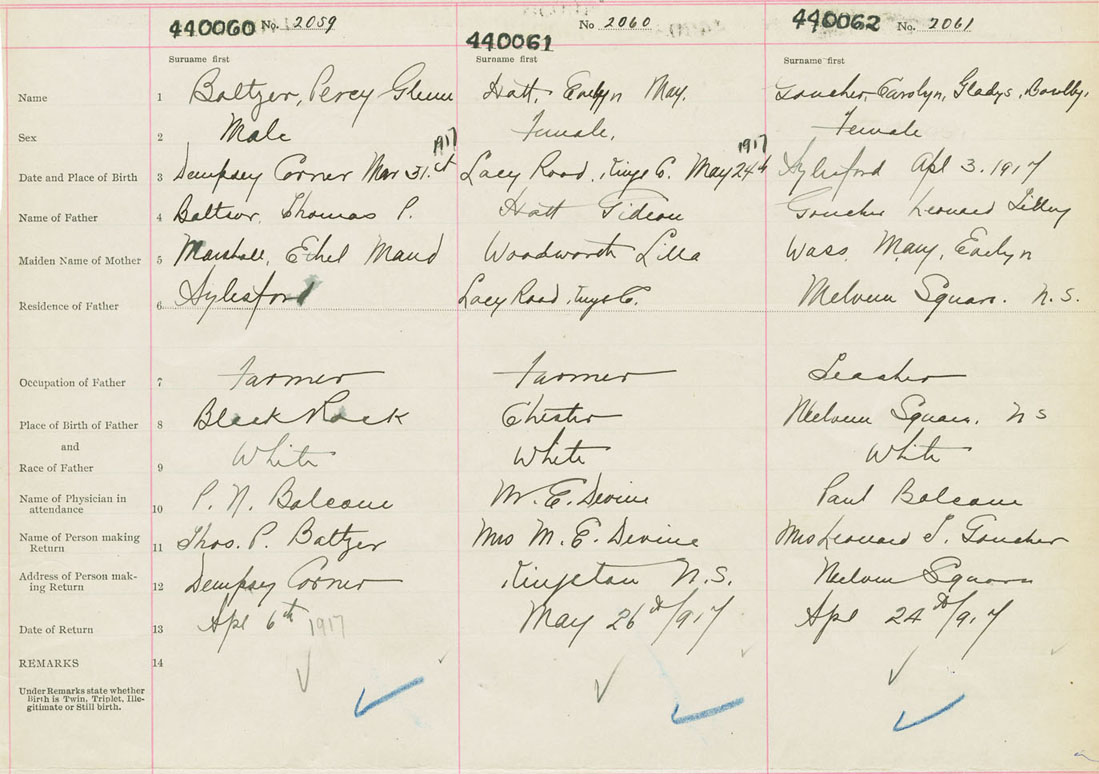 440060 No. 2059
440061 No 2060
440062 No. 2061
Surname first Surname first Surname first
Name 1 Baltzer, Percy Glenn Hatt, Evelyn May. Goucher, Carolyn, Gladys,
Sex 2 Male Female, Female
1917 1917
Date and Place of Birth 3 Dempsey Corner Mar 31.st Lacy Road, Kings C. May 24th Aylesford Apl 3. 1917
Name of Father 4 Thomas P. Hatt Gideon Goucher Leonard
Maiden Name of Mother 5 Marshall, Ethel Maud Woodworth Lilla Wass, Mary, Evelyn
Residence of Father 6 Aylesford Lacy Road, Kings C. Melvern Square. N.S.
Occupation of Father 7 Farmer Farmer
Place of Birth of Father 8 Black Rock Chester Melvern Square. NS
and
Race of Father 9 White White White
Name of Physician in
attendance 10 P. N. Balcom M. E. Devine Paul Balcom
Name of Person making
Return 11 Thos. P. Baltzer Mrs M. E. Devine Mrs Leonard Goucher
Address of Person mak-
ing Return 12 Dempsey Corner Kingston N.S. Melvern Square
Date of Return 13 Apl 6th 1917 May 26th/917 Apl 24th/917
REMARKS 14
Under Remarks state whether
Birth is Twin, Triplet, Ille-
gitimate or Still birth.